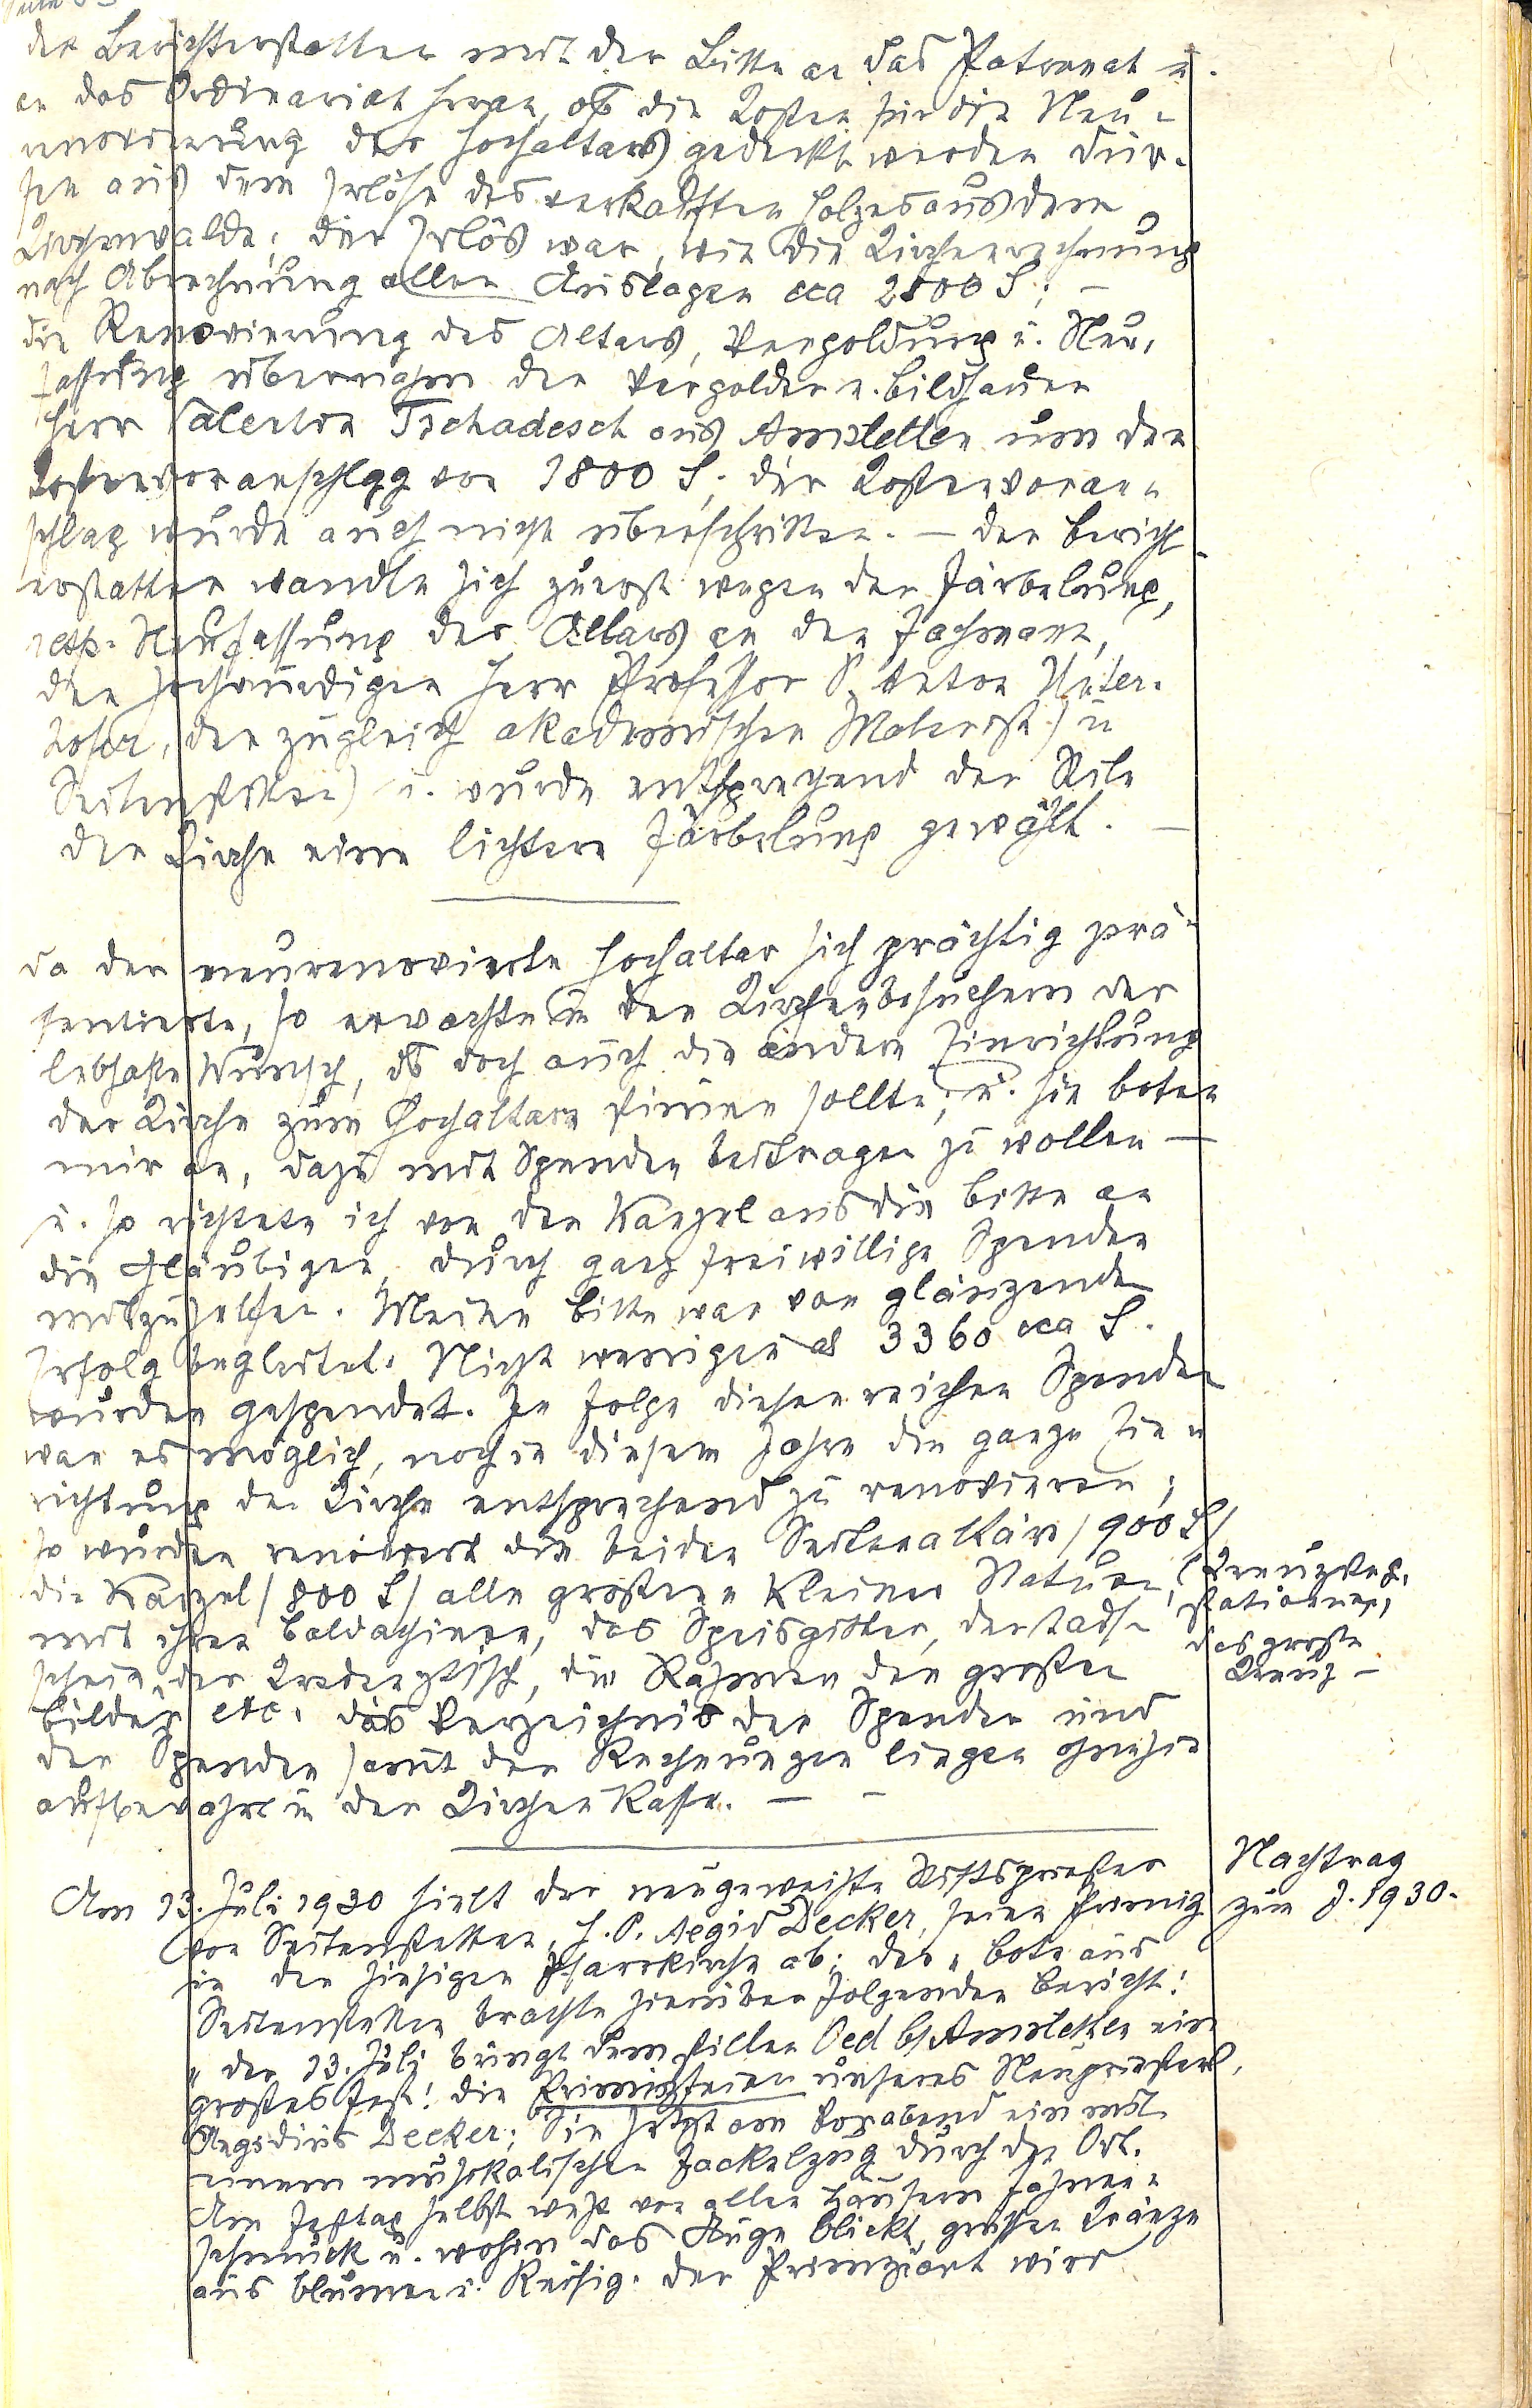 der Berichterstatter mit der Bitte an das Patronat u.
an das Ordinariat heran, ob die Kosten für die Neu-
renovierung des Hochaltars gedeckt werden dür-
fen aus dem Erlöse des verkauften Holzes aus dem
Kirchenwalde; der Erlös war, wie die Kirchenrechnung
nach Abrechnung aller Auslagen cca 2800 S; –
die Renovierung des Altars, Vergoldung u. Neu-
fassung übernahm der Vergolder u. Bildhauer
Herr Valentin Tschadesch aus Amstetten um den
Kostenvoranschlag von 1800 S; der Kostenvoran-
schlag wurde auch nicht überschritten. – Der Bericht-
erstatter wandte sich zuerst wegen der Färbelung,
resp. Neufassung des Altars an den Fachmann,
den hochwürdigen Herr Professor P. Anton Unter-
hofer, der zugleich akademischer Maler ist) u
Seitenstetten) u. wurde entsprechend der Stile
der Kirche eine lichtere Färbelung gewählt. –
Da der neurenovierte Hochaltar sich prächtig prä-
sentierte, so erwachte in den Kirchenbesuchern der
lebhafte Wunsch, ds doch auch die andere Einrichtung
der Kirche zum Hochaltare stimmen sollte; u. sie boten
mir an, dazu mit Spenden beitragen zu wollen –
u. so richtete ich von der Kanzel aus die Bitte an
die Gläubigen, durch ganz freiwillige Spenden
mitzuhelfen. Meine Bitte war von glänzenden
Erfolg begleitet. Nicht weniger als 3360 cca S.
wurden gespendet. In Folge dieser reichen Spenden
war es möglich, noch in diesem Jahre die ganze Ein-
richtung der Kirche entsprechend zu renovieren;
so wurden renoviert die beiden Seitenaltäre /900 S/
die Kanzel /800 S/ alle größeren kleinen Statuen, (Kreuzweg-
mit ihren Baldachinen, das Speisgitter, der Kredenztisch, die Rahmen der großen
stationen,
das große
Kreuz –
Bilder etc. Das Verzeichnis der Spenden und
der Spender samt den Rechnungen liegen
aufbewahrt in der Kirchenkasse. – –
Nachtrag
zum J. 1930.
Am 13. Juli 1930 hielt der neugeweihte Stiftspriester
von Seitenstetten, H. P. Aegid Decker, seine Primiz
in der hiesigen Pfarrkirche ab; der „Bote aus
Seitenstetten brachte hierüber folgenden Bericht:
„Der 13. Juli bringt dem stillen Oed b/Amstetten ein
großes Fest! Die Primizfeier unseres Neupriesters,
Aegidius Decker; Sie setzt am Vorabend ein mit
einem musikalischen Fackelzug durch den Ort.
Am Festtag selbst weht von allen Häusern Fahnen-
schmuck u. wohin das Auge blickt, grüßen Kränze
aus Blumen u. Reisig. Der Primiziant wird